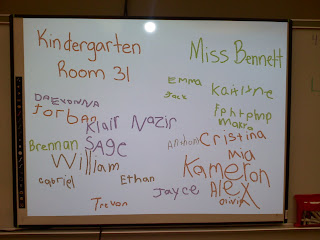 Kindergarten
Room 31
Miss Bennett
Emma
Jack
Kaitlyne
DAEVONNA
Jordan
Klair
Nazir
Makro
Brennan
SAGE
Anthony
Cristina
William
Mia
Kameron
Gabriel
Ethan
Jayce
Alex
Olivia
Trevon